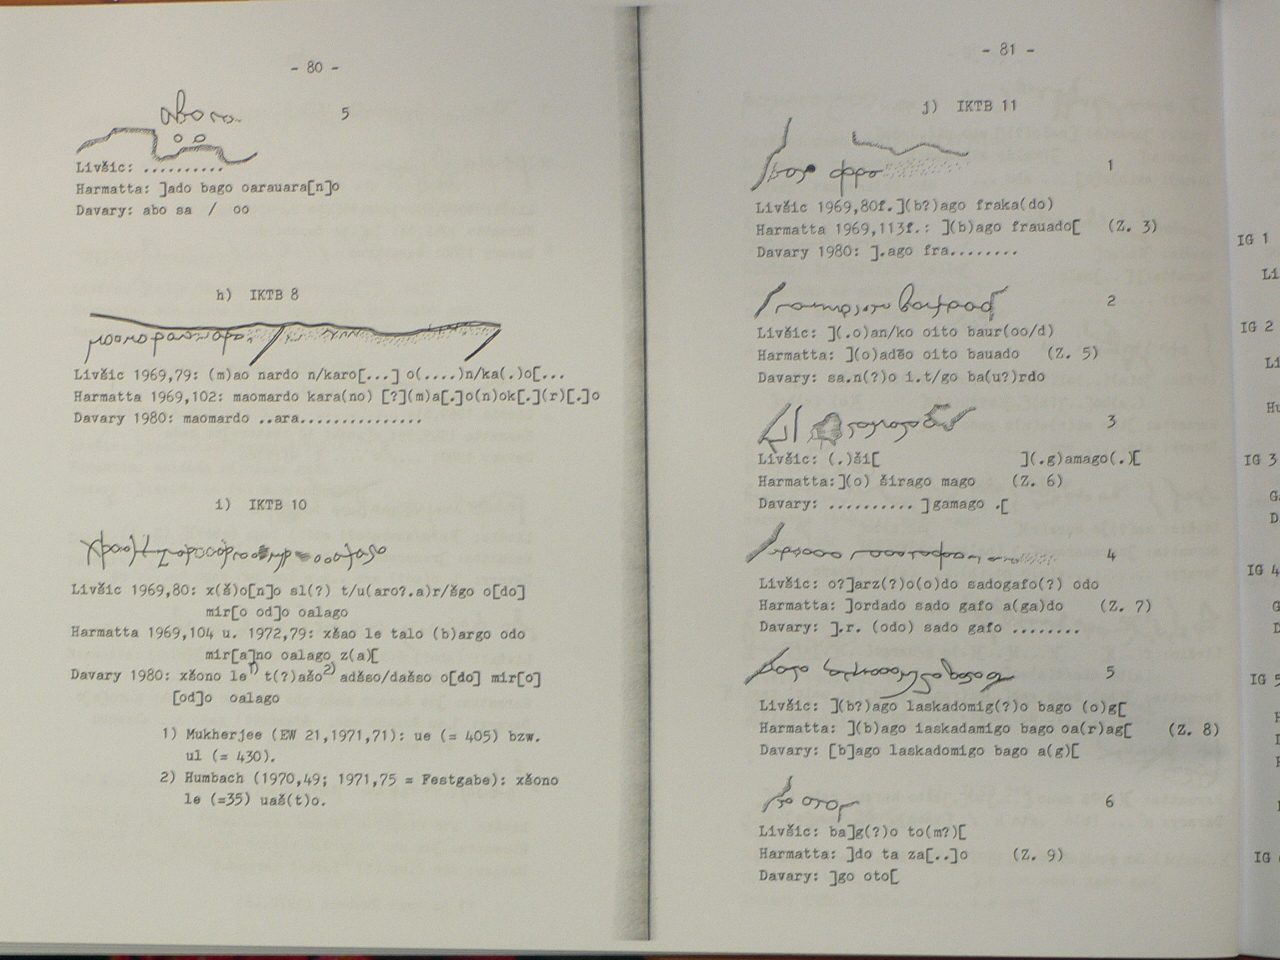 - 80 -
5
Livšic: ..........
Harmatta: ]ado bago oarauara[n]o
Davary: abo sa / oo
h) IKTB 8
Livšic 1969,79: (m)ao nardo n/karo[...] o(....)n/ka(.)o[...
Harmatta 1969,102: maomardo kara(no) [?](m)a[.]o(n)ok[.](r)[.]o
Davary 1980: maomardo ..ara...............
i) IKTB 10
Livšic 1969,80: x(š)o[n]o sl(?) t/u(aro?.a)r/šgo o[do]
mir[o od]o oalago
Harmatta 1969,104 u. 1972,79: xšao le talo (b)argo odo
mir[a]no oalago z(a)[
Davary 1980: xšono le1) t(?)ašo2) adšso/dašso o[do] mir[o]
[od]o oalago
1) Mukherjee (EW 21,1971,71): ue (= 405) bzw.
ul (= 430).
2) Humbach (1970,49; 1971,75 = Festgabe): xšono
le (=35) uaš(t)o.
- 81 -
j) IKTB 11
1
Livšic 1969,80f.](b?)ago fraka(do)
Harmatta 1969,113f.: ](b)ago frauado[ (Z. 3)
Davary 1980: ].ago fra........
2
Livšic: ](.o)an/ko oito baur(oo/d)
Harmatta: ](o)adēo oito bauado (Z. 5)
Davary: sa.n(?)o i.t/go ba(u?)rdo
3
Livšic: (.)ši[ ](.g)amago(.)[
Harmatta:](o) širago mago (Z. 6)
Davary: .......... ]gamago .[
4
Livšic: o?]arz(?)o(o)do sadogafo(?) odo
Harmatta: ]ordado sado gafo a(ga)do (Z. 7)
Davary: ].r. (odo) sado gafo ........
5
Livšic: ](b?)ago laskadomig(?)o bago (o)g[
Harmatta: ](b)ago iaskadamigo bago oa(r)ag[ (Z. 8)
Davary: [b]ago laskadomigo bago a(g)[
6
Livšic: ba]g(?)o to(m?)[
Harmatta: ]do ta za[..]o (Z. 9)
Davary: ]go oto[
IG 1
Li
IG 2
Li
Hu
IG 3
Ga
D
IG 4
G
D
IG 5
H
D
IG